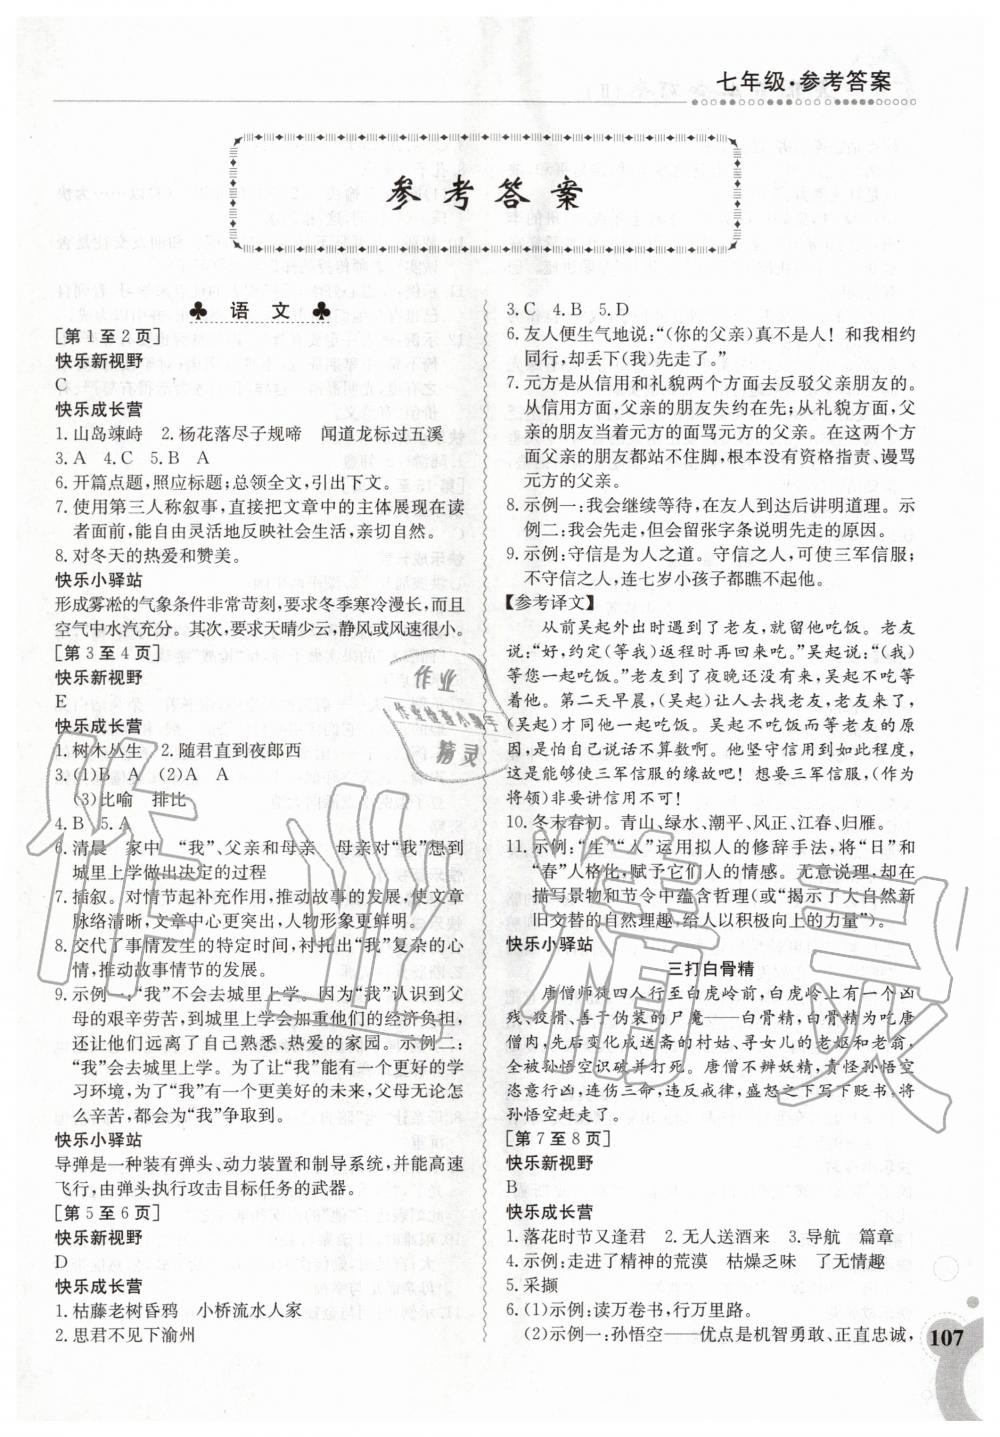 七年级·参考答案
参考答案
♣ 语 文 ♣
[第 1 至 2 页]
快乐新视野
C
快乐成长营
1. 山岛竦峙　2. 杨花落尽子规啼　闻道龙标过五溪
3. A　4. C　5. B　A
6. 开篇点题，照应标题；总领全文，引出下文。
7. 使用第三人称叙事，直接把文章中的主体展现在读
者面前，能自由灵活地反映社会生活，亲切自然。
8. 对冬天的热爱和赞美。
快乐小驿站
形成雾凇的气象条件非常苛刻，要求冬季寒冷漫长，而且
空气中水汽充分。其次，要求天晴少云，静风或风速很小。
[第 3 至 4 页]
快乐新视野
E
快乐成长营
1. 树木丛生　2. 随君直到夜郎西
3. (1)B　A　(2)A　A
(3)比喻　排比
4. B　5. A
6. 清晨　家中　“我”、父亲和母亲　母亲对“我”想到
城里上学做出决定的过程
7. 插叙。对情节起补充作用，推动故事的发展，使文章
脉络清晰，文章中心更突出，人物形象更鲜明。
8. 交代了事情发生的特定时间，衬托出“我”复杂的心
情，推动故事情节的发展。
9. 示例一：“我”不会去城里上学。因为“我”认识到父
母的艰辛劳苦，到城里上学会加重他们的经济负担，
还让他们远离了自己熟悉、热爱的家园。示例二：
“我”会去城里上学。为了让“我”能有一个更好的学
习环境，为了“我”有一个更美好的未来，父母无论怎
么辛苦，都会为“我”争取到。
快乐小驿站
导弹是一种装有弹头、动力装置和制导系统，并能高速
飞行，由弹头执行攻击目标任务的武器。
[第 5 至 6 页]
快乐新视野
D
快乐成长营
1. 枯藤老树昏鸦　小桥流水人家
2. 思君不见下渝州
3. C　4. B　5. D
6. 友人便生气地说：“(你的父亲)真不是人！和我相约
同行，却丢下(我)先走了。”
7. 元方是从信用和礼貌两个方面去反驳父亲朋友的。
从信用方面，父亲的朋友失约在先；从礼貌方面，父
亲的朋友当着元方的面骂元方的父亲。在这两个方
面父亲的朋友都站不住脚，根本没有资格指责、谩骂
元方的父亲。
8. 示例一：我会继续等待，在友人到达后讲明道理。示
例二：我会先走，但会留张字条说明先走的原因。
9. 示例：守信是为人之道。守信之人，可使三军信服；
不守信之人，连七岁小孩子都瞧不起他。
【参考译文】
从前吴起外出时遇到了老友，就留他吃饭。老友
说：“好，约定(等我)返程时再回来吃。”吴起说：“(我)
等您一起吃饭。”老友到了夜晚还没有来，吴起不吃等
着他。第二天早晨，(吴起)让人去找老友，老友来了，
(吴起)才同他一起吃饭。吴起不吃饭而等老友的原
因，是怕自己说话不算数啊。他坚守信用到如此程度，
这是能够使三军信服的缘故吧！想要三军信服，(作为
将领)非要讲信用不可！
10. 冬末春初。青山、绿水、潮平、风正、江春、归雁。
11. 示例：“生”“入”运用拟人的修辞手法，将“日”和
“春”人格化，赋予它们人的情态。无意说理，却在
描写景物和节令中蕴含哲理(或“揭示了大自然新
旧交替的自然理趣，给人以积极向上的力量”)。
快乐小驿站
三打白骨精
唐僧师徒四人行至白虎岭前，白虎岭上有一个凶
残、狡猾、善于伪装的尸魔——白骨精，白骨精为吃唐
僧肉，先后变化成送斋的村姑、寻女儿的老妪和老翁，
全被孙悟空识破并打死。唐僧不辨妖精，责怪孙悟空
恣意行凶，连伤三命，违反戒律，盛怒之下写下贬书，将
孙悟空赶走了。
[第 7 至 8 页]
快乐新视野
B
快乐成长营
1. 落花时节又逢君　2. 无人送酒来　3. 导航　篇章
4. 示例：走进了精神的荒漠　枯燥乏味　了无情趣
5. 采撷
6. (1)示例：读万卷书，行万里路。
(2)示例一：孙悟空——优点是机智勇敢、正直忠诚，
107
作业
作业检查小帮手
精灵
作业精灵